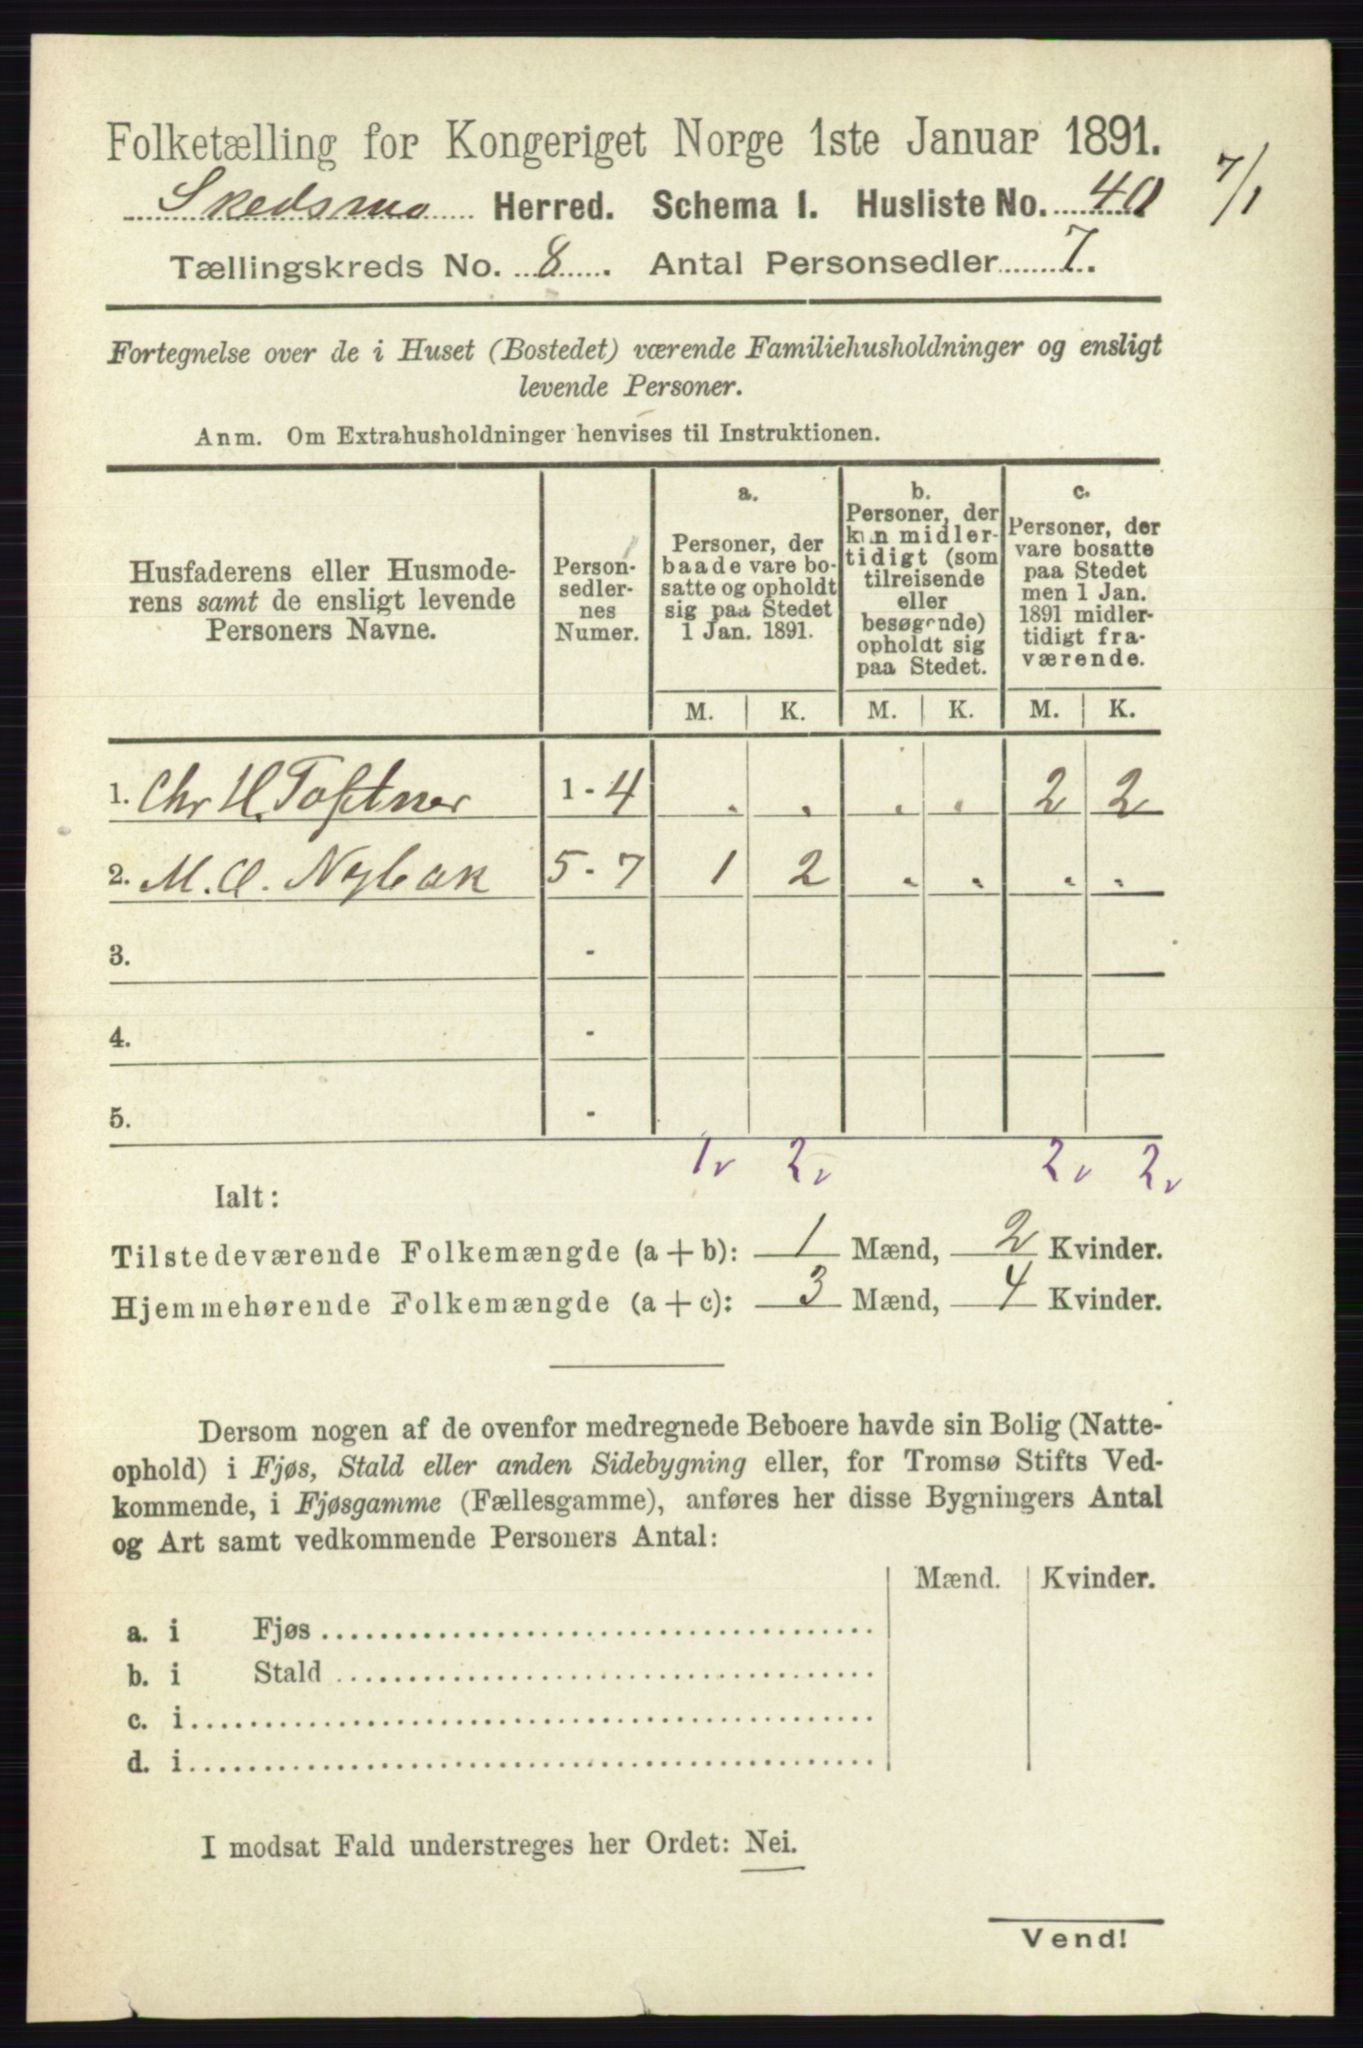 Folketælling for Kongeriget Norge 1ste Januar 1891.
7/1
Skedsmo Herred. Schema I. Husliste No. 40
Tællingskreds No. 8. Antal Personsedler 7.
Fortegnelse over de i Huset (Bostedet) værende Familiehusholdninger og ensligt
levende Personer.
Anm. Om Extrahusholdninger henvises til Instruktionen.
Husfaderens eller Husmode-
rens samt de ensligt levende
Personers Navne.
Person-
sedler-
nes
Numer.
a.
Personer, der
baade vare bo-
satte og opholdt
sig paa Stedet
1 Jan. 1891.
b.
Personer, der
kun midler-
tidigt (som
tilreisende
eller
besøgende)
opholdt sig
paa Stedet.
c.
Personer, der
vare bosatte
paa Stedet
men 1 Jan.
1891 midler-
tidigt fra-
værende.
M. K. M. K. M. K.
1. Chr H. Toftner 1 - 4 . . . . 2 2
2. M. O. Nybak 5 - 7 1 2 . . . .
3. -
4. -
5. -
1v 2v 2v 2v
Ialt:
Tilstedeværende Folkemængde (a + b): 1 Mænd, 2 Kvinder.
Hjemmehørende Folkemængde (a + c): 3 Mænd, 4 Kvinder.
Dersom nogen af de ovenfor medregnede Beboere havde sin Bolig (Natte-
ophold) i Fjøs, Stald eller anden Sidebygning eller, for Tromsø Stifts Ved-
kommende, i Fjøsgamme (Fællesgamme), anføres her disse Bygningers Antal
og Art samt vedkommende Personers Antal:
Mænd. Kvinder.
a. i Fjøs
b. i Stald
c. i
d. i
I modsat Fald understreges her Ordet: Nei.
Vend!